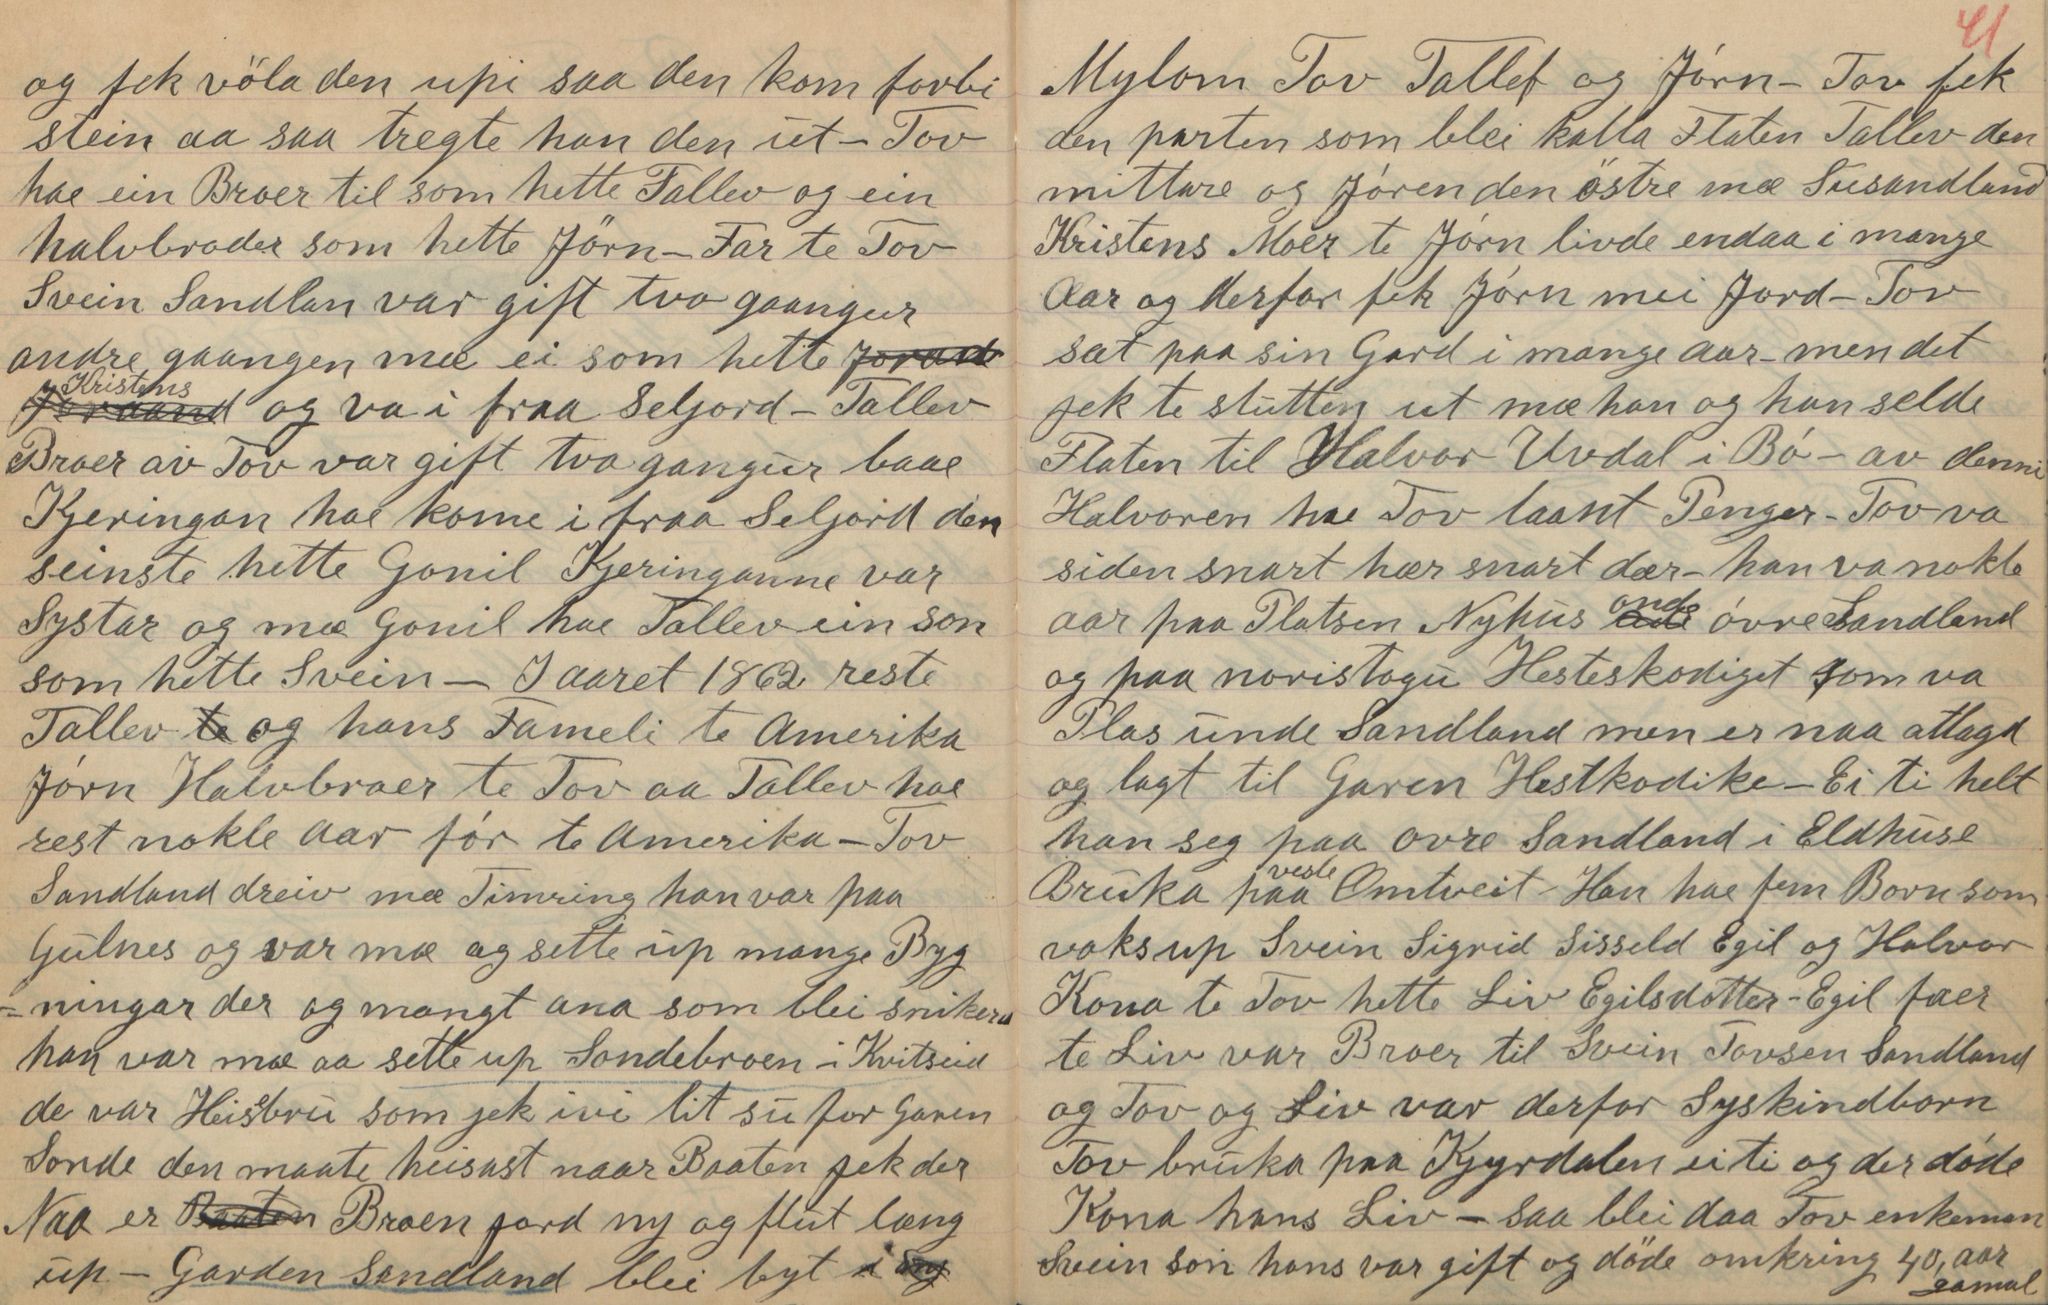 og fek völa den upi saa den kom forbi
stein aa saa tregte han den ut - Tov
hae ein Broer til som hette Tallev og ein
halvbroder som hette Jörn - Far te Tov
Svein Sandlan var gift tvo gaangur
andre gaangen mæ ei som hette Joraand
Kristens
Joraand og va i fraa Seljord - Tallev
Broer av Tov var gift tvo gangur baae
Kjeringan hae kome i fraa Seljord den
seinste hette Gonil Kjeringanne var
Systar og mæ Gonil hae Tallev ein son
som hette Svein - I aaret 1862 reste
Tallev te og hans Fameli te Amerika
Jórn Halvbroer te Tov aa Tallev hae
rest nokle Aar fór te Amerika - Tov
Sandland dreiv mæ Timring han var paa
Gulnes og var mæ og sette up mange Byg
=ningar der og mangt ana som blei snikera
han var mæ aa sette up Sondebroen i Kvitseid
de var Heisbru som jek ivi lit su for Garen
Sonde den maate heisast naar Baaten jek der
Naa er Baaten Broen jord ny og flut læng
up - Garden Sandland blei byt i
41
Mylom Tov Tallef og Jórn - Tov fek
den parten som blei kalla Flaten Tallev den
mittare og Jóren den östre mæ Susandland
Kristens Moer te Jórn livde endaa i mange
Aar og derfor fek Jórn mei Jord - Tov
sat paa sin Gard i mange aar - men det
jek te slutten ut mæ han og han selde
Flaten til Halvor Uvdal i Bó - av denni
Halvoren hae Tov laant Penger - Tov va
siden snart hær snart dær - han va nokle
aar paa Platsen Nyhus onde óvre Sandland
og paa noristogu Hesteskodiget som va
Plas unde Sandland men er naa atlagd
og lagt til Garen Hestkodike - Ei ti helt
han seg paa ovre Sandland i Eldhuse
Bruka paa vesle Omtveit - Han hae fem Born som
voks up Svein Sigrid Sisseld Egil og Halvor
Kona te Tov hette Liv Egilsdotter - Egil faer
te Liv var Broer til Svein Tovsen Sandland
og Tov og Liv var derfor Syskindborn
Tov bruka paa Kjyrdalen ei ti og der dóde
Kona hans Liv - saa blei daa Tov enkeman
Svein son hans var gift og döde omkring 40, aar
gamal